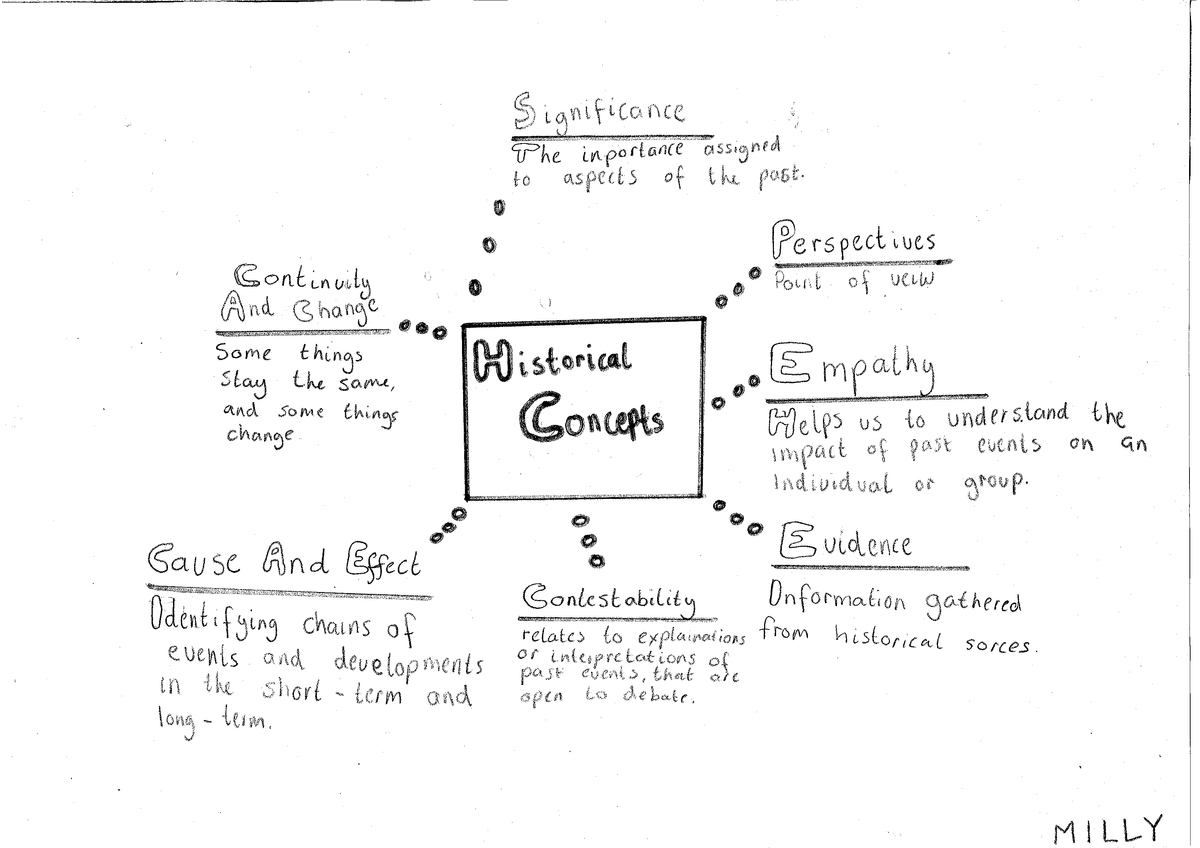 Significance
The inportance assigned
to aspects of the past.
Perspectives
Point of veiw
Continuity
And Change
Some things
Stay the same,
and some things
change
Historical
Concepts
Empathy
Helps us to understand the
impact of past events on an
individual or group.
Evidence
Information gathered
from historical sorces.
Cause And Effect
Identifying chains of
events and developments
in the short-term and
long-term.
Contestability
relates to explainations
or interpretations of
past events, that are
open to debate.
MILLY